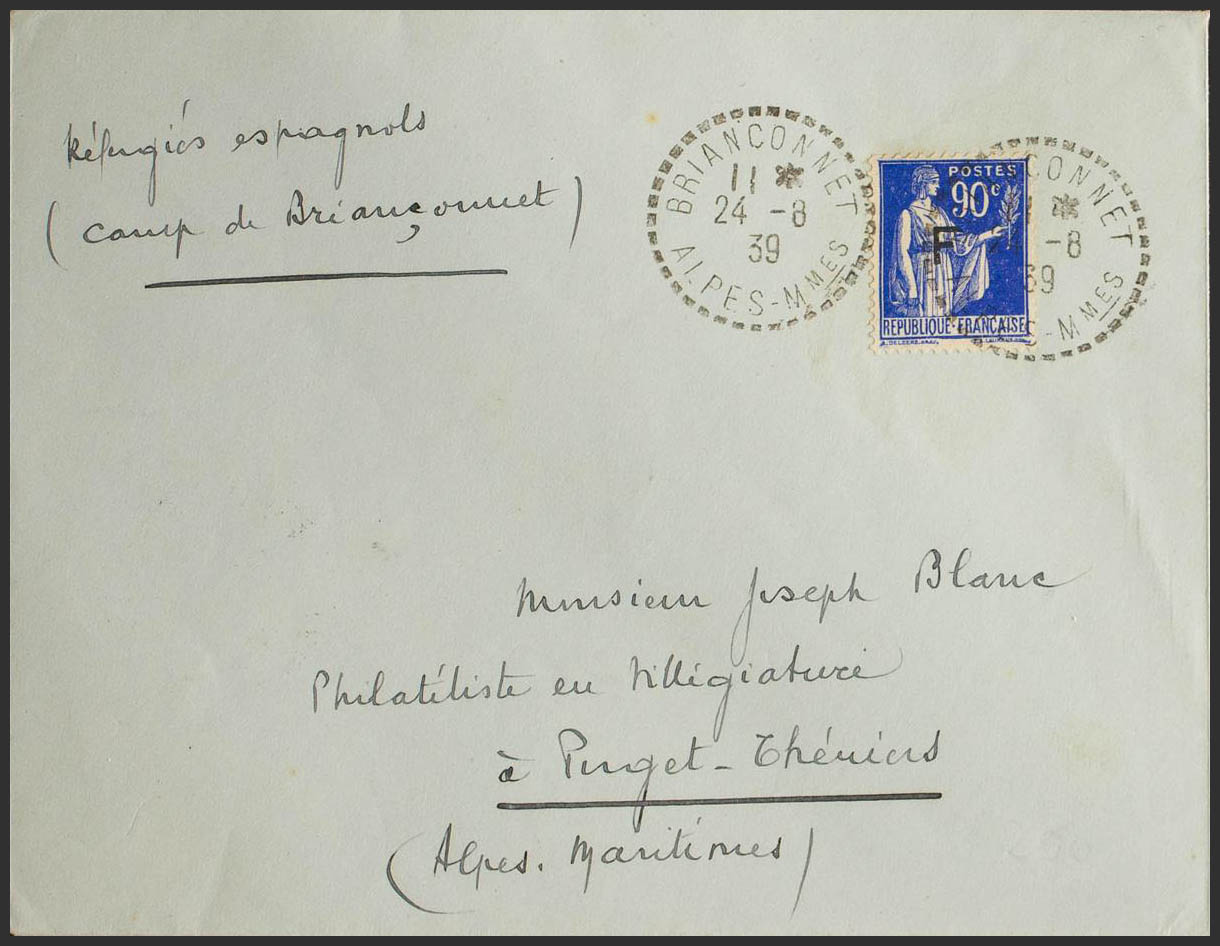 Réfugiés espagnols
(camp de Briançonnet)
BRIANÇONNET
11 *
24 -8
39
ALPES-MMES
POSTES
90c
F
RÉPUBLIQUE-FRANÇAISE
BRIANÇONNET
24 -8
39
ALPES-MMES
Monsieur Joseph Blanc
Philatéliste en villégiature
à Puget-Théniers
(Alpes. Maritimes)